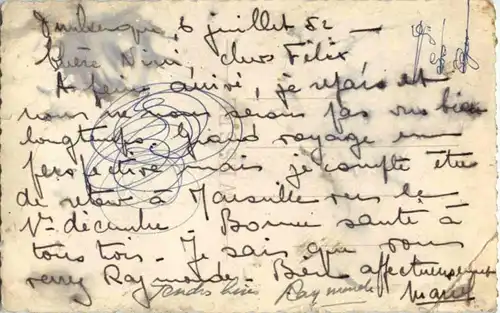 Dunkerque, 6 juillet 52 -
Chère Nini, cher Félix
A peine arrivé, je repars et
nous ne nous serons pas vus bien
longtemps. Grand voyage en
perspective mais je compte être
de retour à Marseille vers le
1er décembre. Bonne santé à
tous trois. Je sais que vous
verrez Raymonde. Bien affectueusement
Marcel
Tendres bises Raymonde